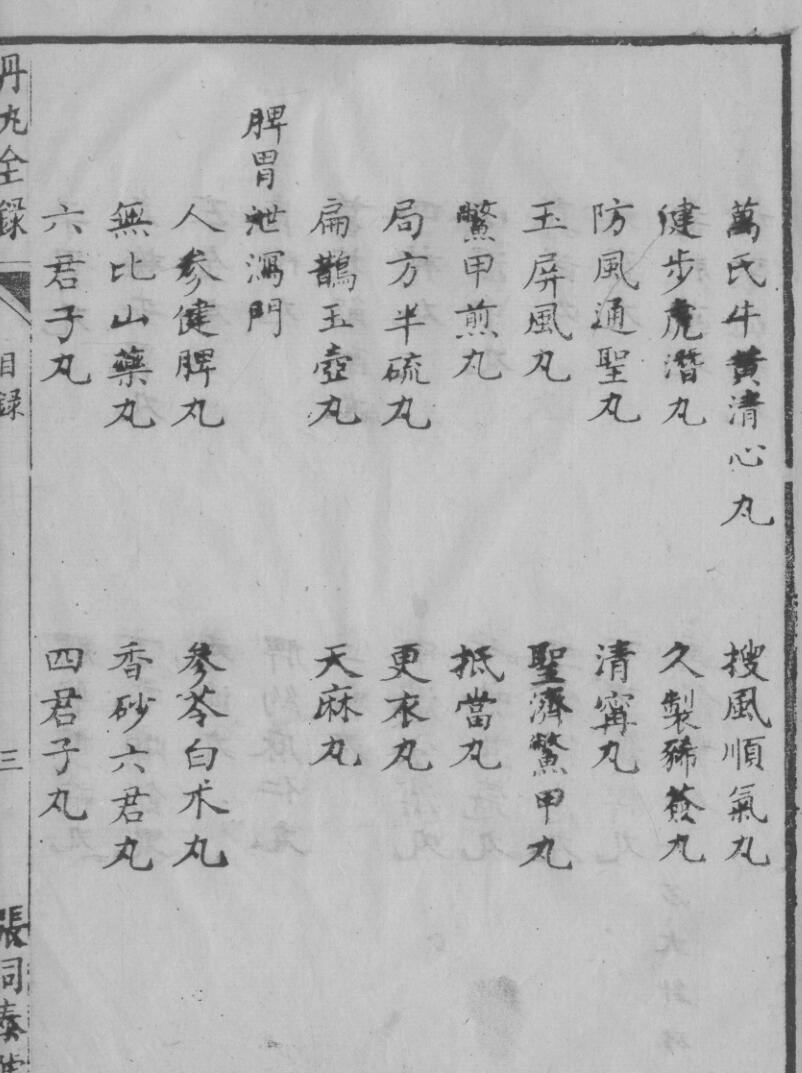 萬氏牛黄清心丸
搜風順氣丸
健步虎潛丸
久製豨薟丸
防風通聖丸
清甯丸
玉屏風丸
聖濟鱉甲丸
鱉甲煎丸
抵當丸
局方半硫丸
更衣丸
扁鵲玉壺丸
天麻丸
脾胃泄瀉門
人參健脾丸
參苓白朮丸
無比山藥丸
香砂六君丸
六君子丸
四君子丸
丹丸全録
目録
三
張同泰